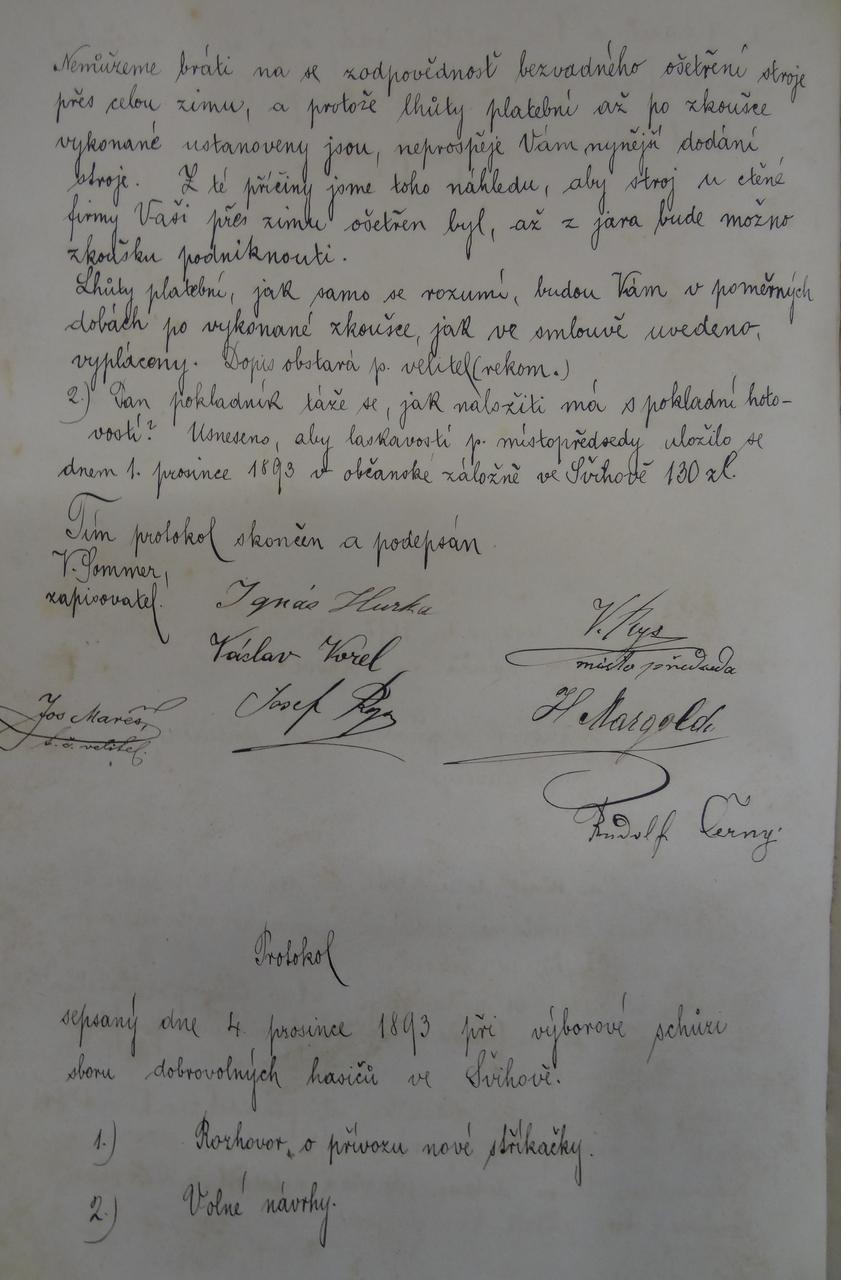 Nemůžeme bráti na se zodpovědnosť bezvadného ošetření stroje
přes celou zimu, a protože lhůty platební až po zkoušce
vykonané ustanoveny jsou, neprospěje Vám nynější dodání
stroje. Z té příčiny jsme toho náhledu, aby stroj u ctěné
firmy Vaši přes zimu ošetřen byl, až z jara bude možno
zkoušku podniknouti.
Lhůty platební, jak samo se rozumí, budou Vám v poměrných
dobách po vykonané zkoušce, jak ve smlouvě uvedeno,
vypláceny. Dopis obstará p. velitel (rekom.)
2.) Pan pokladník táže se, jak naložiti má s pokladní hoto-
vostí? Usneseno, aby laskavostí p. místopředsedy uložilo se
dnem 1. prosince 1893 v občanské záložně ve Švihově 130 zl.
Tím protokol skončen a podepsán.
V. Sommer,
zapisovatel.
Ignás Hurka
V.
místopředseda
Václav Vorel
Jos Mareš,
t. č. velitel.
Josef
H Margold
Rudolf Černý
Protokol
sepsaný dne 4. prosince 1893 při výborové schůzi
sboru dobrovolných hasičů ve Švihově.
1.) Rozhovor o přívozu nové stříkačky.
2.) Volné návrhy.